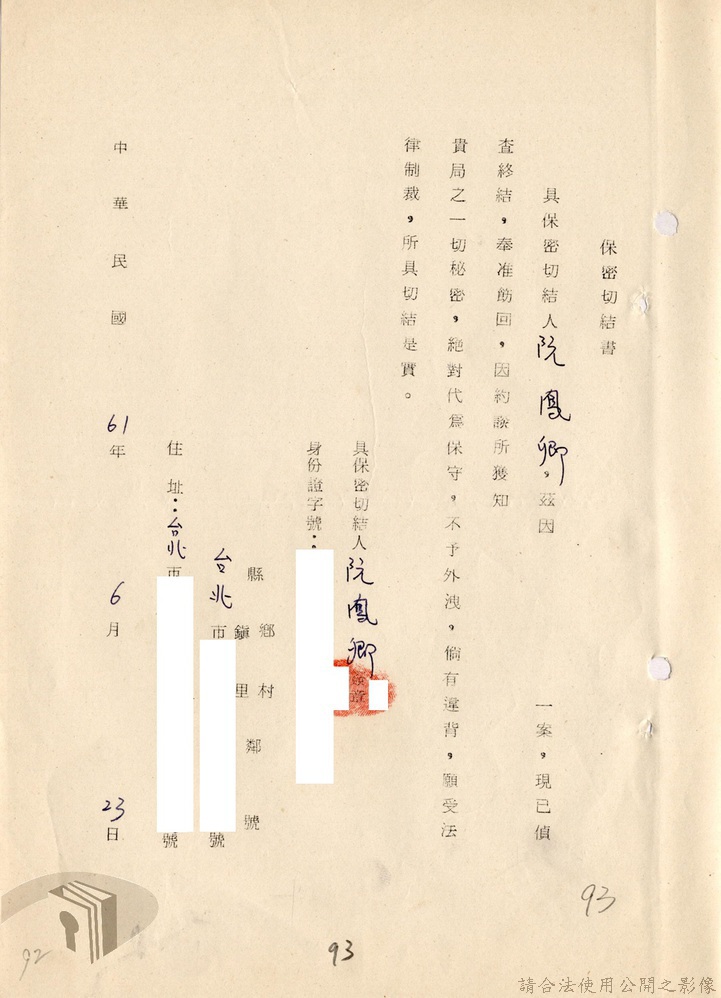 保密切結書
具保密切結人阮鳳卿，茲因　　一案，現已偵
查終結，奉准飭回，因約談所獲知
貴局之一切秘密，絕對代為保守，不予外洩，倘有違背，願受法
律制裁，所具切結是實。
具保密切結人阮鳳卿
身份證字號：
台北
縣　鄉　村　鄰　號
市　鎮　里　號
住址：台北市　號
中華民國61年6月23日
93
93
92
請合法使用公開之影像